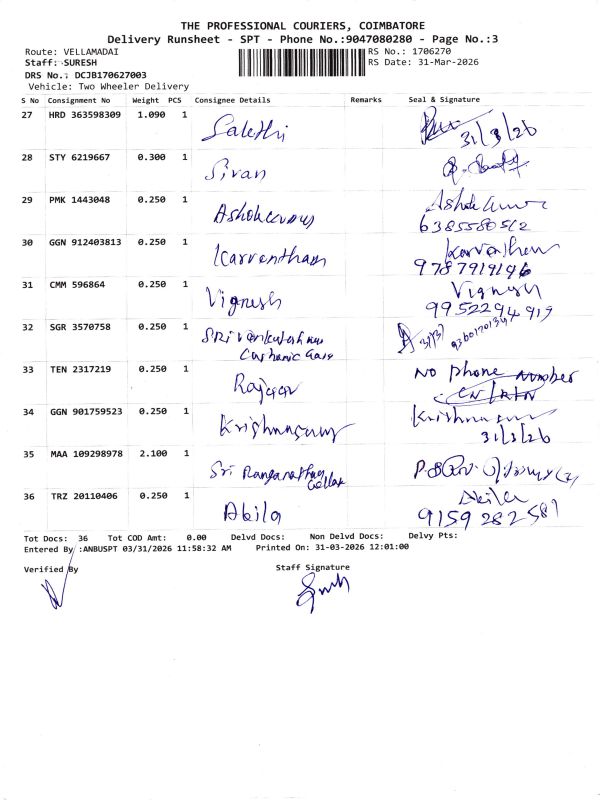 THE PROFESSIONAL COURIERS, COIMBATORE
Delivery Runsheet - SPT - Phone No.:9047080280 - Page No.:3
Route: VELLAMADAI RS No.: 1706270
Staff: SURESH RS Date: 31-Mar-2026
DRS No.: DCJB170627003
Vehicle: Two Wheeler Delivery
S No Consignment No Weight PCS Consignee Details Remarks Seal & Signature
27 HRD 363598309 1.090 1 Sakthi 31/3/26
28 STY 6219667 0.300 1 Sivan
29 PMK 1443048 0.250 1 Ashokkumar Ashok kumar
6385580512
30 GGN 912403813 0.250 1 Karventhan Karventhan
9787919146
31 CMM 596864 0.250 1 Vignesh Vignesh
9952294919
32 SGR 3570758 0.250 1 Sri Venkateshwar 31/3/ 9360170134
33 TEN 2317219 0.250 1 Rajeev No phone number
34 GGN 901759523 0.250 1 Krishnasamy Krishnasamy
31/3/26
35 MAA 109298978 2.100 1 Sri Ranganathar
36 TRZ 20110406 0.250 1 Akila Akila
9159282581
Tot Docs: 36 Tot COD Amt: 0.00 Delvd Docs: Non Delvd Docs: Delvy Pts:
Entered By :ANBUSPT 03/31/2026 11:58:32 AM Printed On: 31-03-2026 12:01:00
Verified By Staff Signature